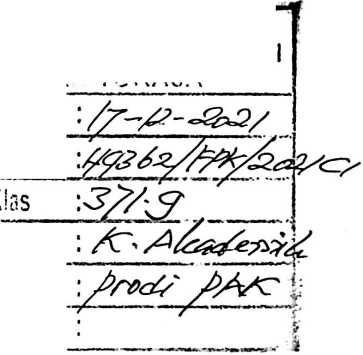 : 17-12-2021
: 49362/FPK/2021 C1
Klas : 371.9
: K. Akademik
: prodi PAK
: